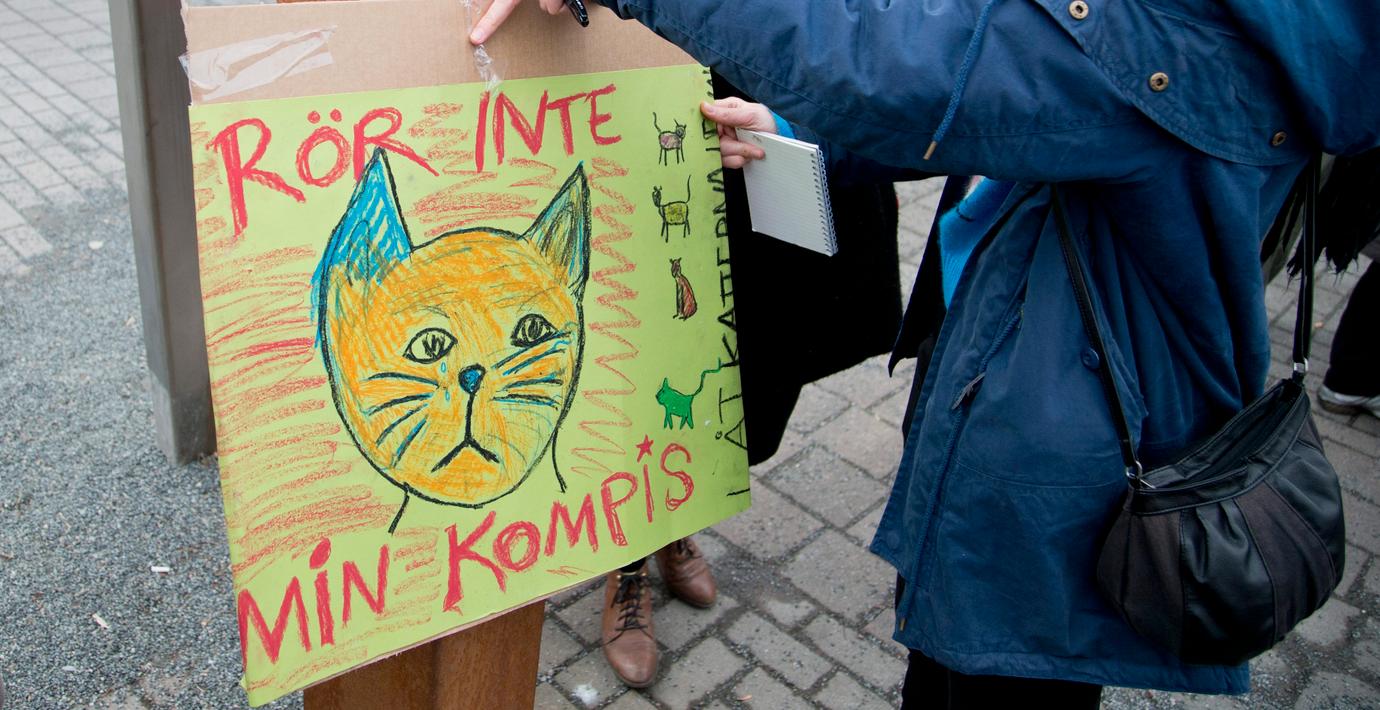 RÖR INTE
MIN KOMPIS
LÅT KATTERNA